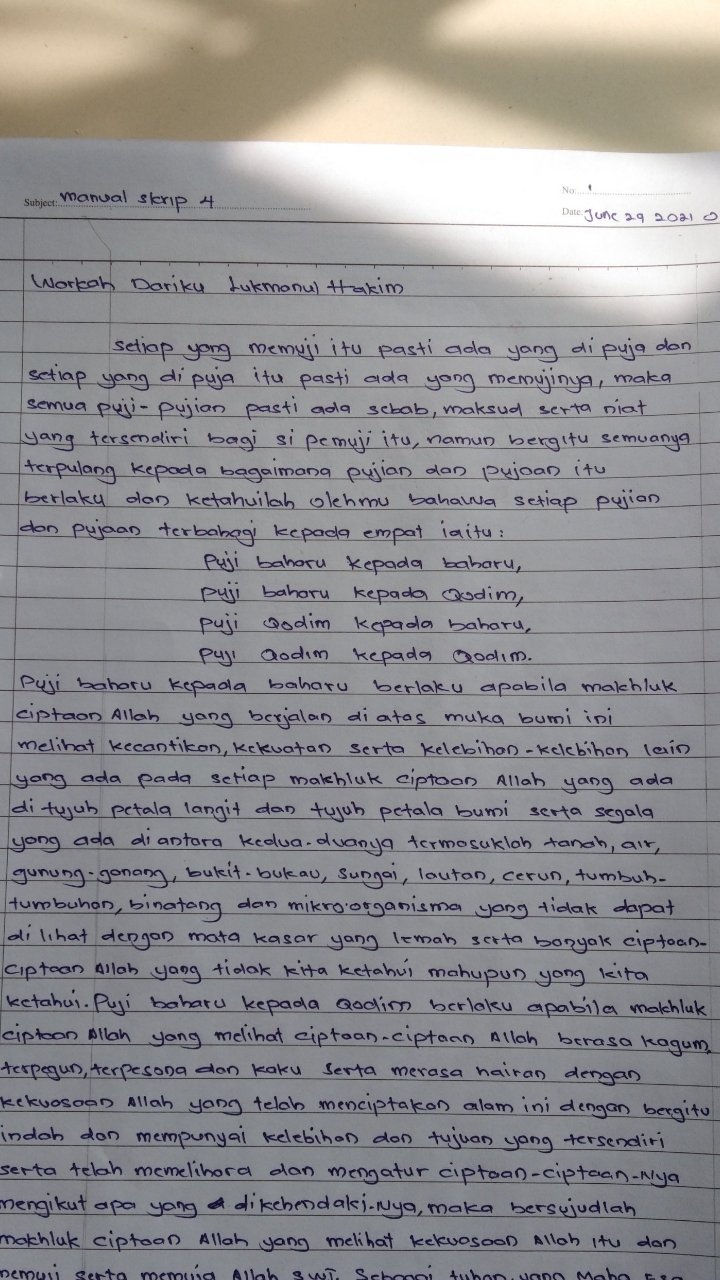 Subject: Manual skrip 4
No: 1
Date: June 29 2021
Warkah Dariku Lukmanul Hakim
setiap yang memuji itu pasti ada yang di puja dan
setiap yang di puja itu pasti ada yang memujinya, maka
semua puji-pujian pasti ada sebab, maksud serta niat
yang tersendiri bagi si pemuji itu, namun bergitu semuanya
terpulang kepada bagaimana pujian dan pujaan itu
berlaku dan ketahuilah olehmu bahawa setiap pujian
dan pujaan terbahagi kepada empat iaitu:
Puji baharu kepada baharu,
puji baharu kepada Qodim,
puji Qodim kepada baharu,
puji Qodim kepada Qodim.
Puji baharu kepada baharu berlaku apabila makhluk
ciptaan Allah yang berjalan di atas muka bumi ini
melihat kecantikan, kekuatan serta kelebihan-kelebihan lain
yang ada pada setiap makhluk ciptaan Allah yang ada
di tujuh petala langit dan tujuh petala bumi serta segala
yang ada di antara kedua-duanya termasuklah tanah, air,
gunung-ganang, bukit-bukau, sungai, lautan, cerun, tumbuh-
tumbuhan, binatang dan mikro-organisma yang tidak dapat
di lihat dengan mata kasar yang lemah serta banyak ciptaan-
ciptaan Allah yang tidak kita ketahui mahupun yang kita
ketahui. Puji baharu kepada Qodim berlaku apabila makhluk
ciptaan Allah yang melihat ciptaan-ciptaan Allah berasa kagum,
terpegun, terpesona dan kaku serta merasa hairan dengan
kekuasaan Allah yang telah menciptakan alam ini dengan bergitu
indah dan mempunyai kelebihan dan tujuan yang tersendiri
serta telah memelihara dan mengatur ciptaan-ciptaan-Nya
mengikut apa yang di kehendaki-Nya, maka bersujudlah
makhluk ciptaan Allah yang melihat kekuasaan Allah itu dan
memuji serta memuja Allah SWT. Sebagai tuhan yang Maha Esa